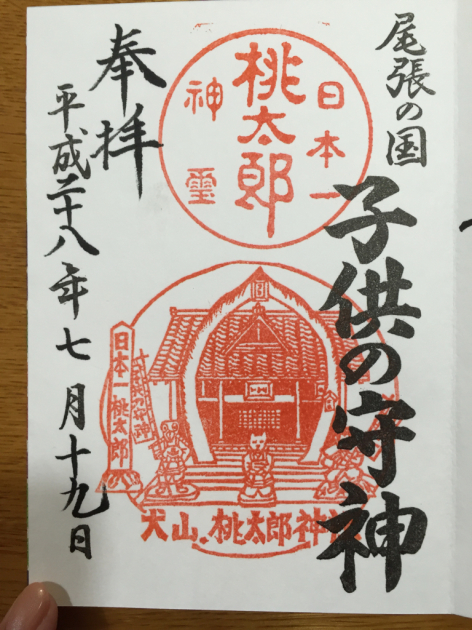 尾張の国
子供の守神
日本一
桃太郎
神霊
日本一桃太郎
犬山・桃太郎神社
奉拝
平成二十八年七月十九日